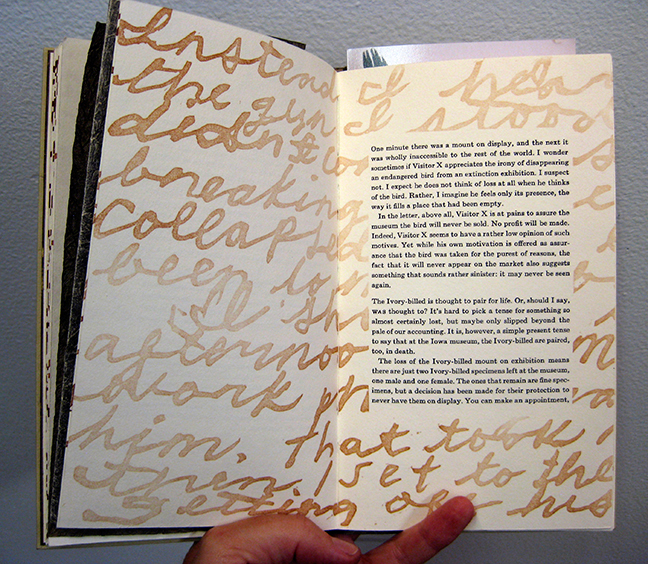 Instead I hea
the gun I stood
didn't
breaking
collapsed
been
I sho
afternoo
work
him. That took
then I set to the
getting off his
One minute there was a mount on display, and the next it
was wholly inaccessible to the rest of the world. I wonder
sometimes if Visitor X appreciates the irony of disappearing
an endangered bird from an extinction exhibition. I suspect
not. I expect he does not think of loss at all when he thinks
of the bird. Rather, I imagine he feels only its presence, the
way it fills a place that had been empty.
In the letter, above all, Visitor X is at pains to assure the
museum the bird will never be sold. No profit will be made.
Indeed, Visitor X seems to have a rather low opinion of such
motives. Yet while his own motivation is offered as assur-
ance that the bird was taken for the purest of reasons, the
fact that it will never appear on the market also suggests
something that sounds rather sinister: it may never be seen
again.
The Ivory-billed is thought to pair for life. Or, should I say,
was thought to? It's hard to pick a tense for something so
almost certainly lost, but maybe only slipped beyond the
pale of our accounting. It is, however, a simple present tense
to say that at the Iowa museum, the Ivory-billed are paired,
too, in death.
The loss of the Ivory-billed mount on exhibition means
there are just two Ivory-billed specimens left at the museum,
one male and one female. The ones that remain are fine spec-
imens, but a decision has been made for their protection to
never have them on display. You can make an appointment,